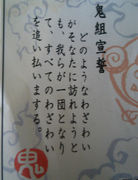 鬼組宣誓
どのようなわざわい
がそなたに訪れようと
も、我らが一団となり
て、すべてのわざわい
を追い払いまする。
鬼